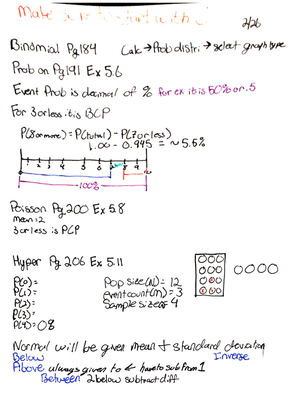 Make
2/26
Binomial Pg 184
Calc → Prob distri → select graph type
Prob on Pg 191 Ex 5.6
Event Prob is decimal of % for ex it is 50% or .5
For 3 or less it is BCP
P(8 or more) = P(total) - P(7 or less)
1.00 - 0.945 = ~5.5%
100%
Poisson Pg 200 Ex 5.8
mean = 2
3 or less is PCP
Hyper Pg 206 Ex 5.11
P(0) =
P(1) =
P(2) =
P(3) =
P(4) = 08
Pop size (N) = 12
event count (M) = 3
Sample size 4
Normal will be given mean + standard deviation
Below
Inverse
Above always given to have to sub from 1
Between 2 below subtract diff